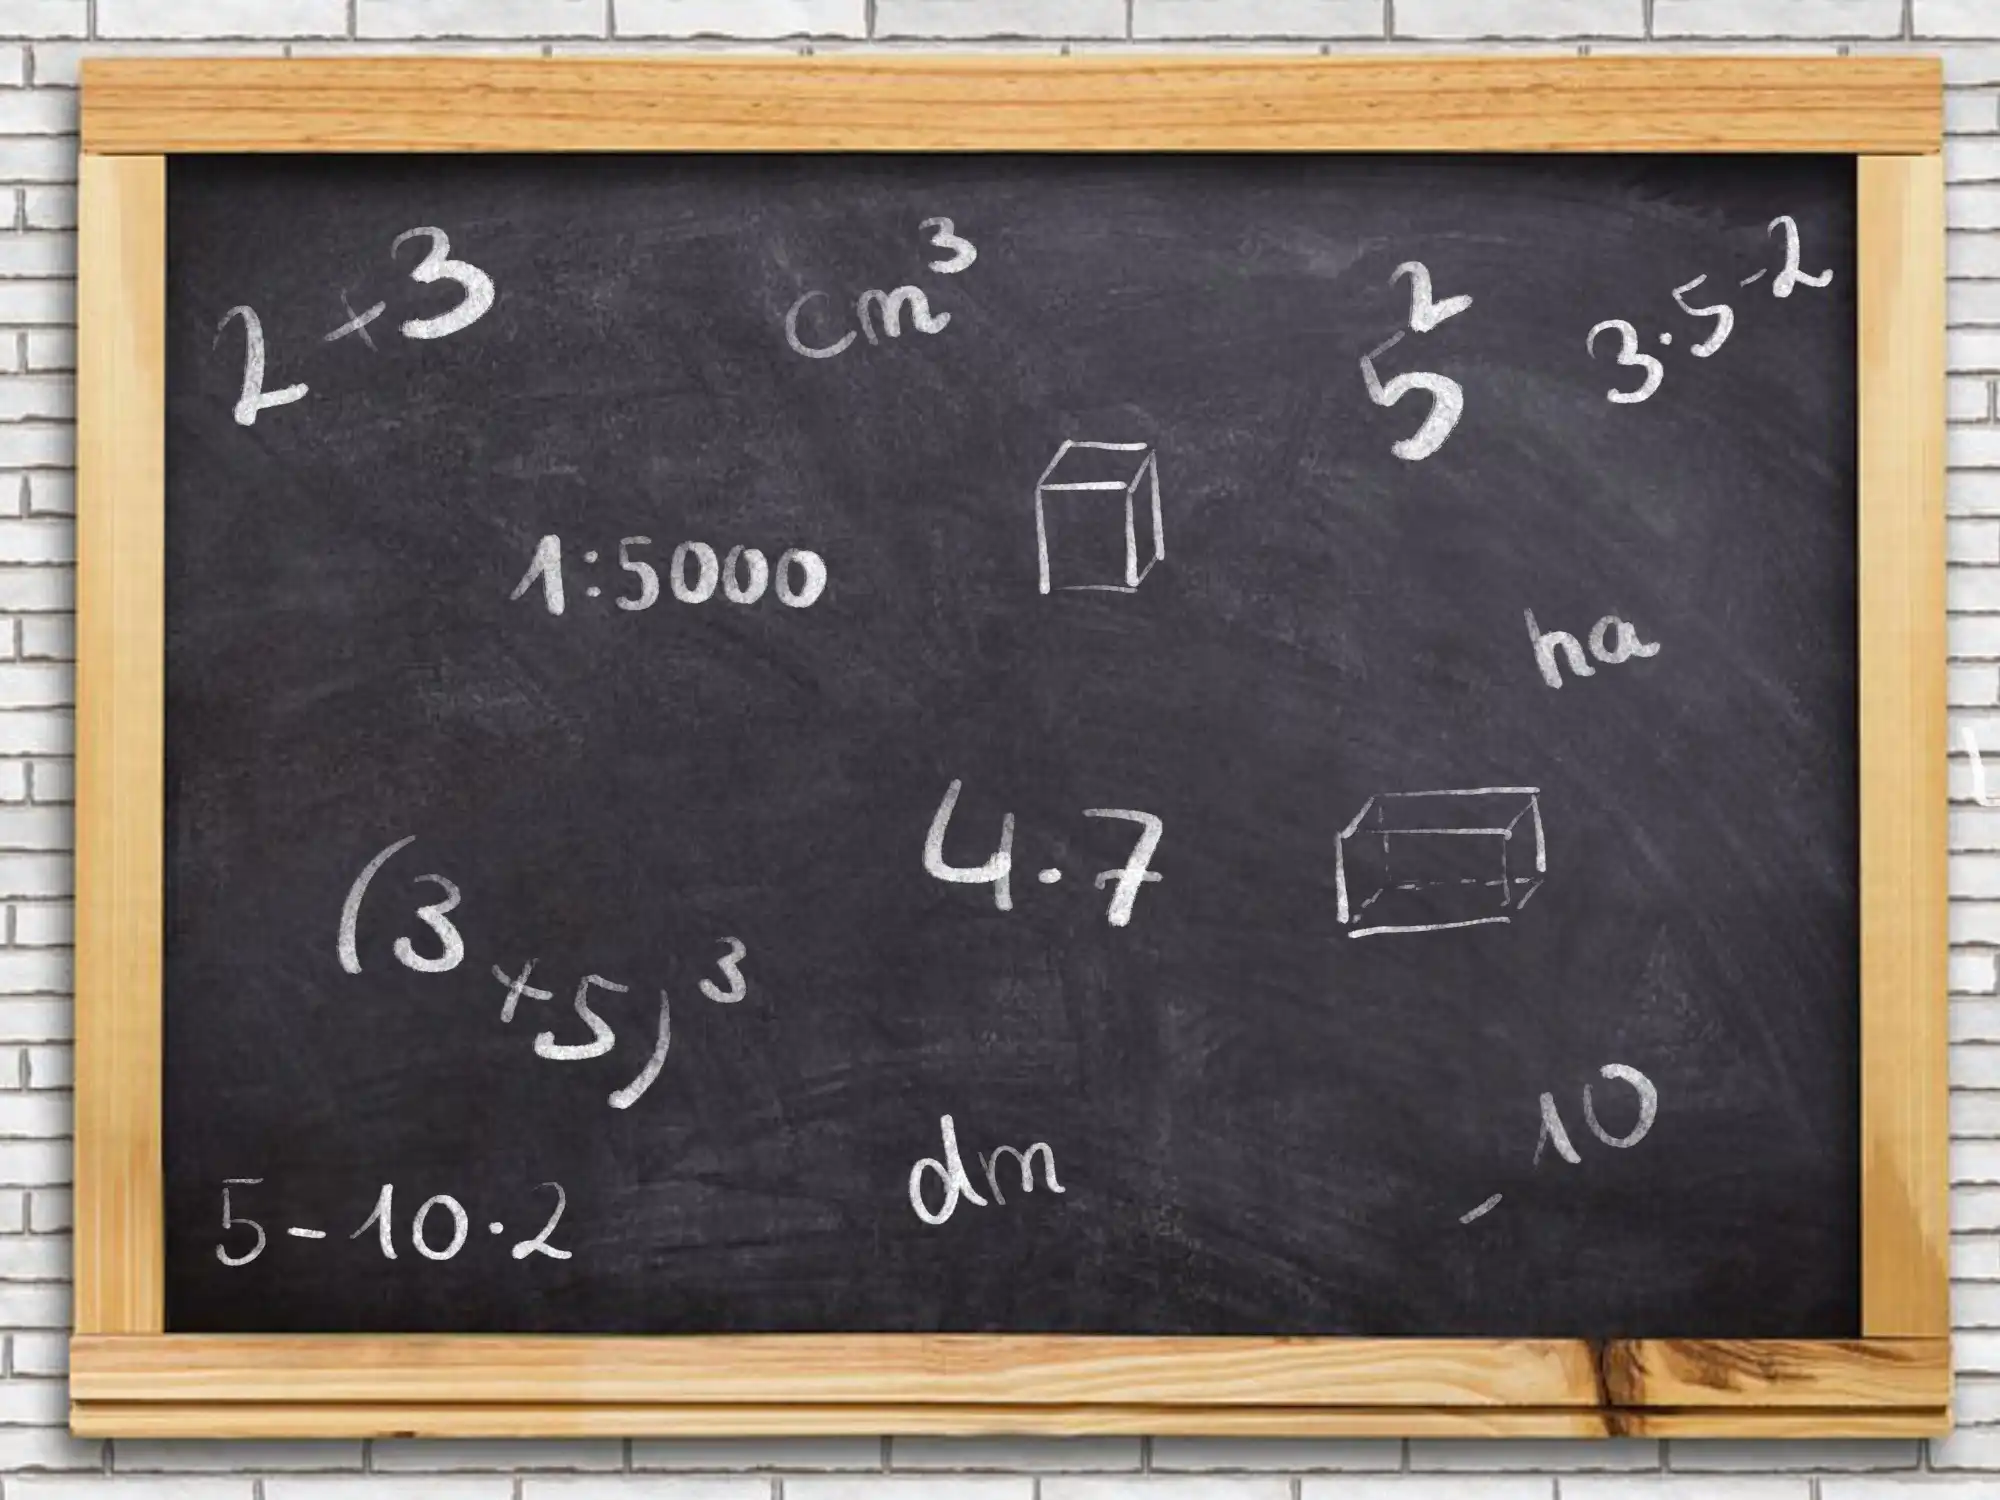 2 + 3
cm³
5²
3·5-2
1:5000
ha
4·7
(3+5)³
-10
dm
5-10·2